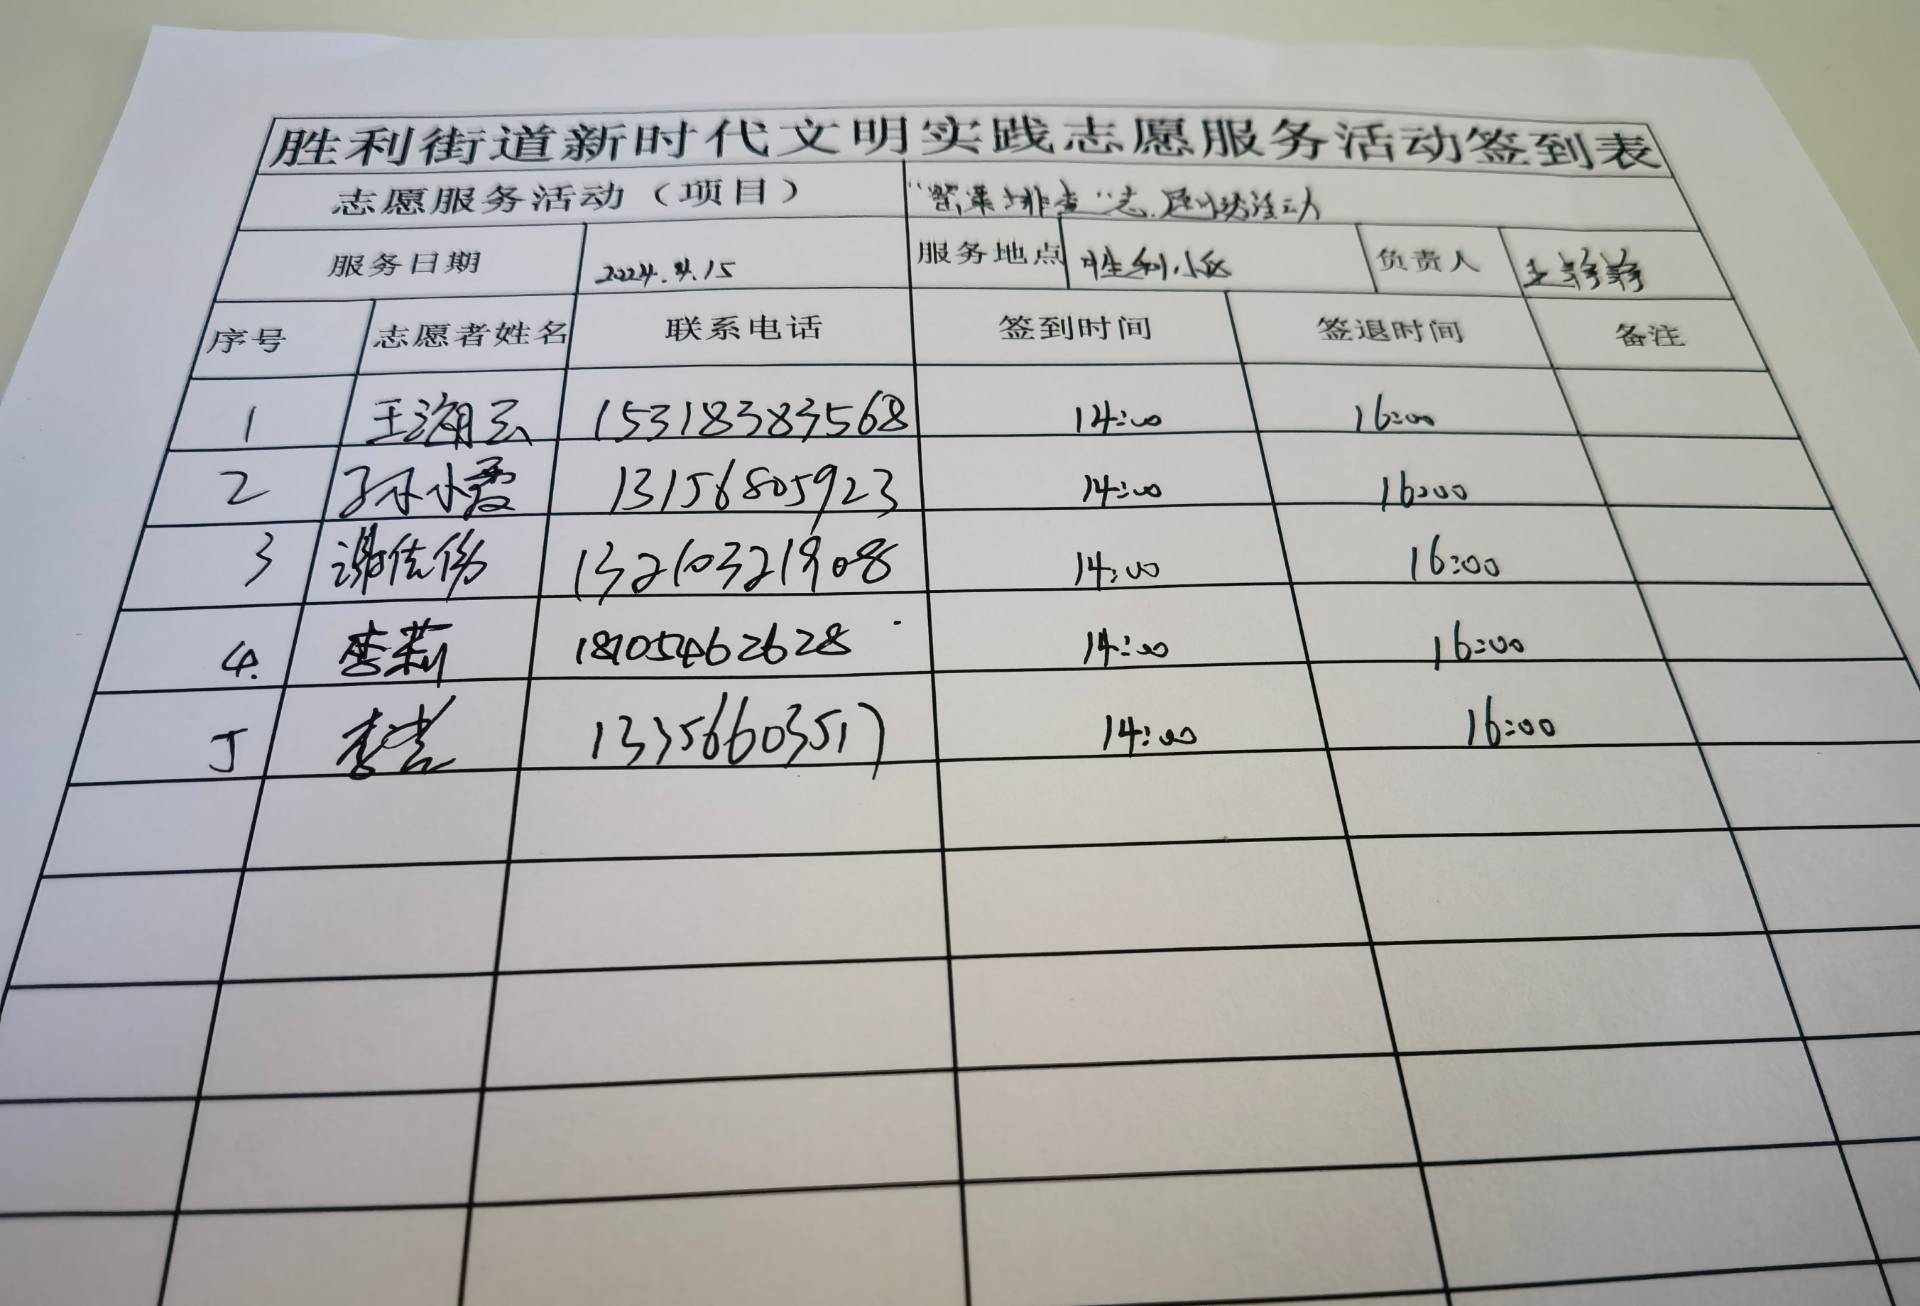 胜利街道新时代文明实践志愿服务活动签到表
志愿服务活动（项目） 排查"志愿服务活动
服务日期 2024.4.15 服务地点 胜利小区 负责人 王
序号 志愿者姓名 联系电话 签到时间 签退时间 备注
1 王海云 15318383568 14:00 16:00
2 孙小霞 13156805923 14:00 16:00
3 谢 13210321908 14:00 16:00
4. 李莉 18105462628 14:00 16:00
5 李 13356603517 14:00 16:00